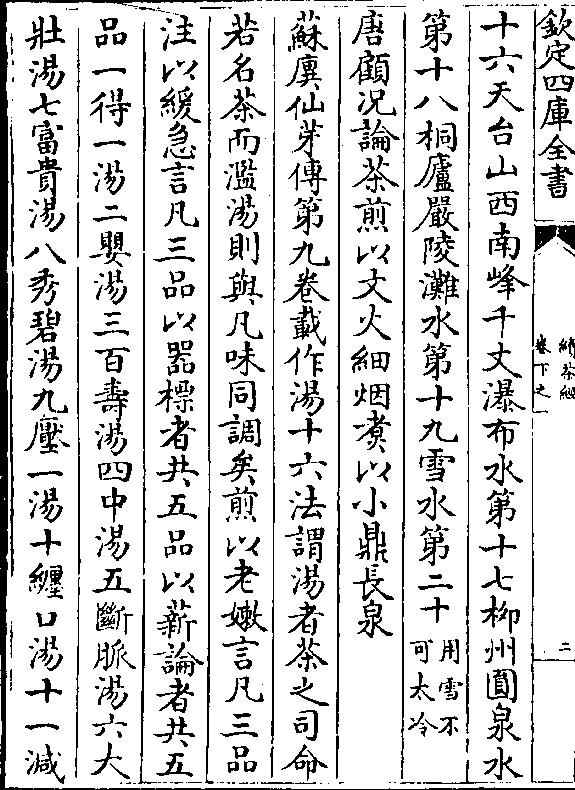 欽定四庫全書
續茶經
卷下之一
二
十六天台山西南峰千丈瀑布水第十七柳州圓泉水
第十八桐廬嚴陵灘水第十九雪水第二十用雪不可太冷
唐顧况論茶煎以文火細烟煑以小鼎長泉
蘇廙仙芽傳第九卷載作湯十六法謂湯者茶之司命
若名茶而濫湯則與凡味同調矣煎以老嫩言凡三品
注以緩急言凡三品以器標者共五品以薪論者共五
品一得一湯二嬰湯三百壽湯四中湯五斷脈湯六大
壯湯七富貴湯八秀碧湯九壓一湯十纒口湯十一減